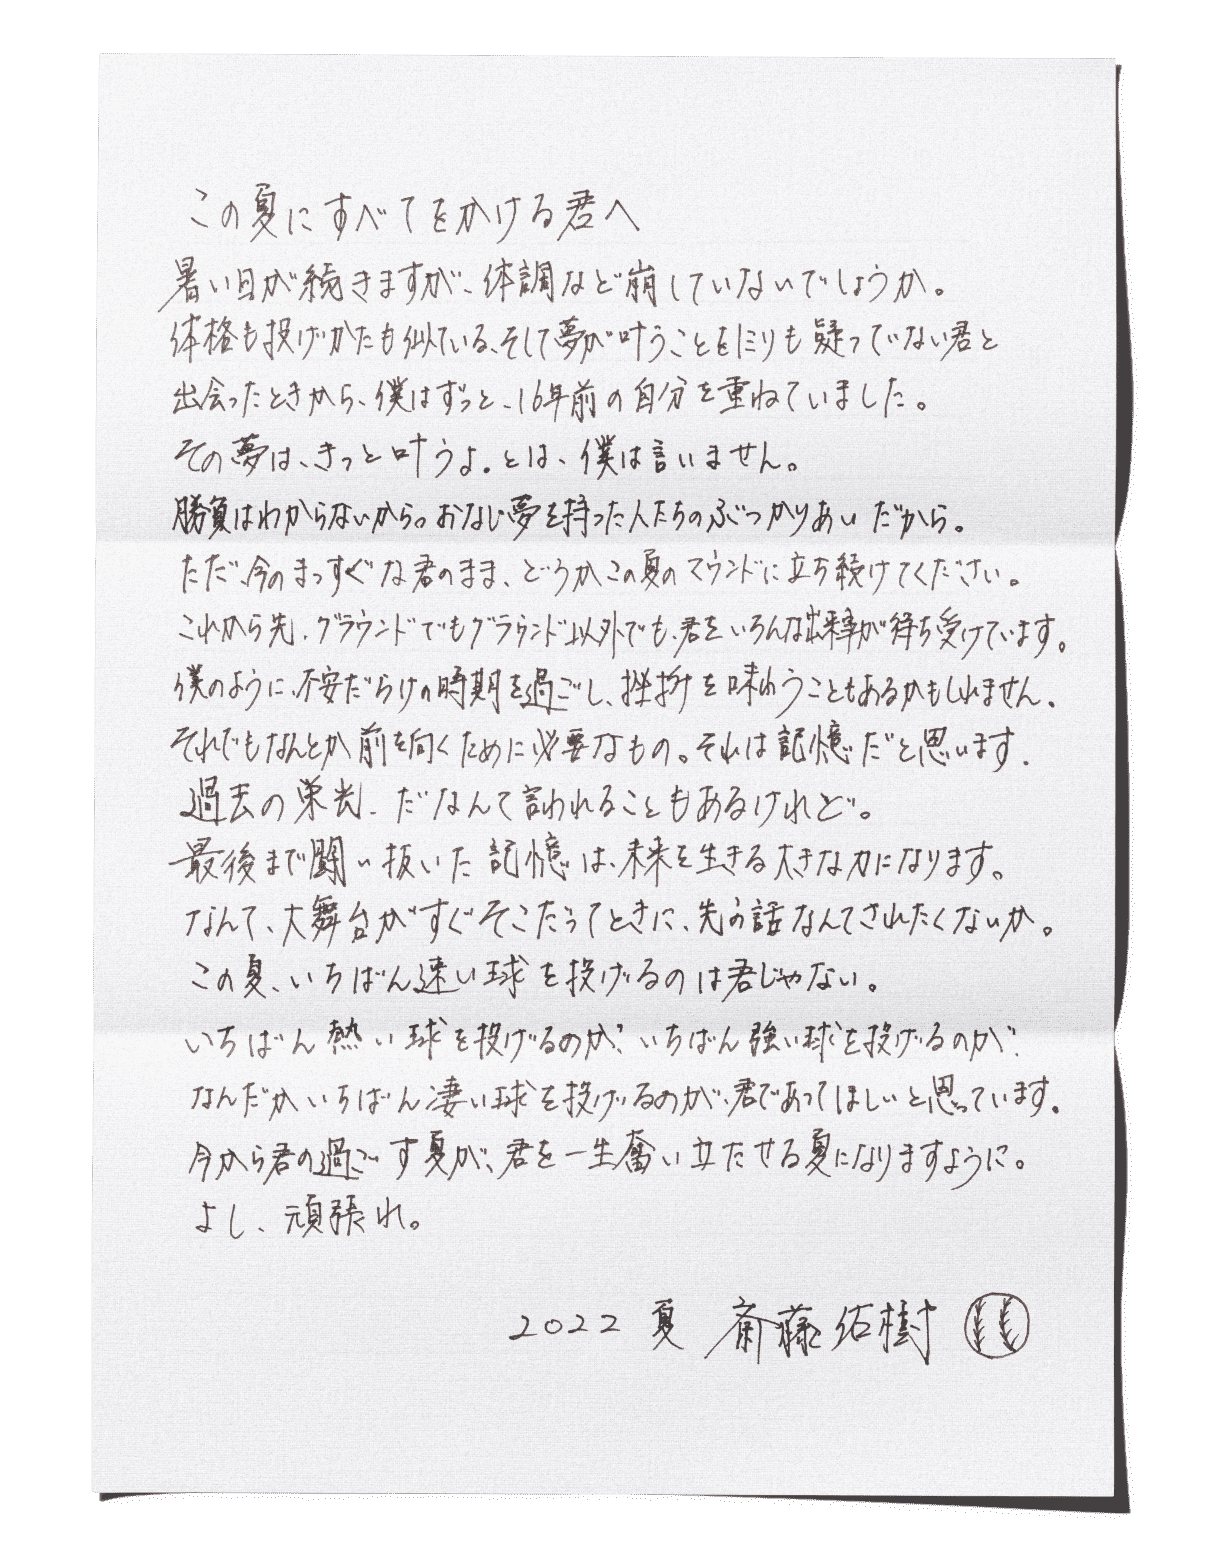 この夏にすべてをかける君へ
暑い日が続きますが、体調など崩していないでしょうか。
体格も投げかたも似ている、そして夢が叶うことを微塵も疑っていない君と
出会ったときから、僕はずっと、16年前の自分を重ねていました。
その夢は、きっと叶うよ。とは、僕は言いません。
勝負はわからないから。おなじ夢を持った人たちのぶつかりあいだから。
ただ、今のまっすぐな君のまま、どうかこの夏のマウンドに立ち続けてください。
これから先、グラウンドでもグラウンド以外でも、君をいろんな出来事が待ち受けています。
僕のように、不安だらけの時期を過ごし、挫折を味わうこともあるかもしれません。
それでもなんとか前を向くために必要なもの。それは記憶だと思います。
過去の栄光、だなんて言われることもあるけれど。
最後まで闘い抜いた記憶は、未来を生きる大きな力になります。
なんて、大舞台がすぐそこだってときに、先の話なんてされたくないか。
この夏、いちばん速い球を投げるのは君じゃない。
いちばん熱い球を投げるのが、いちばん強い球を投げるのが、
なんだかいちばん凄い球を投げるのが、君であってほしいと思っています。
今から君の過ごす夏が、君を一生奮い立たせる夏になりますように。
よし、頑張れ。
2022 夏 斎藤佑樹